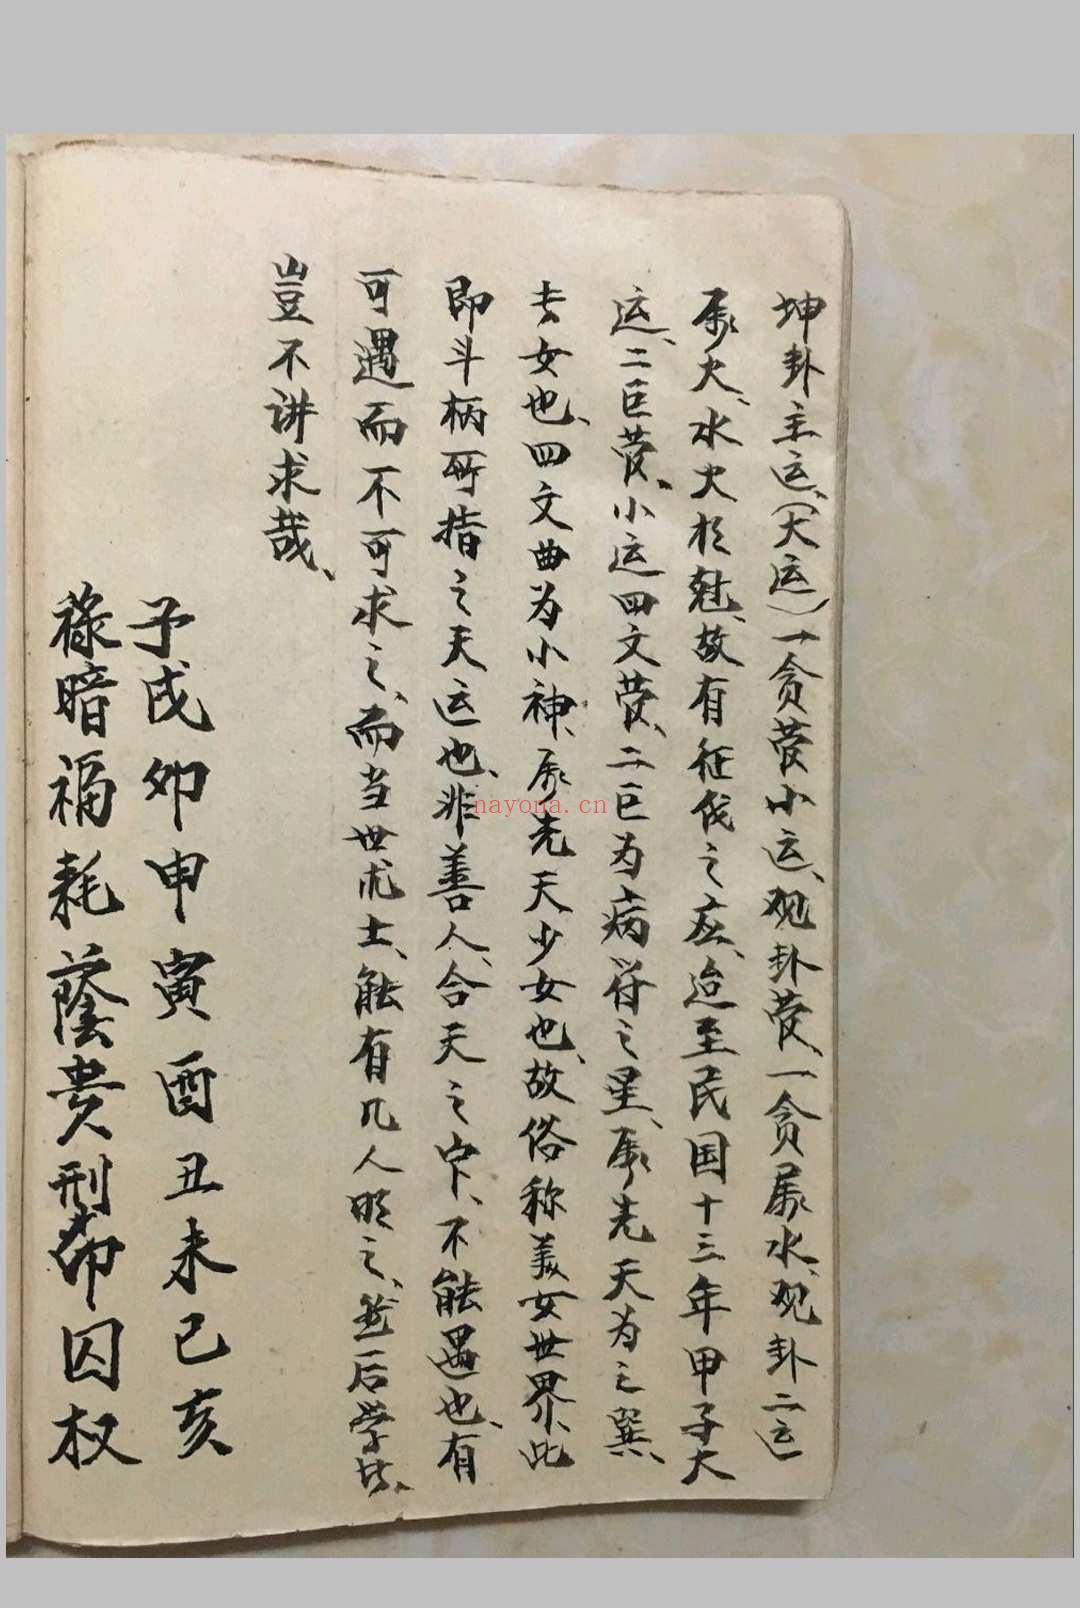 坤卦主运、（大运）一贪管小运、观卦管、一贪属水、观卦二运
属火、水火相尅、故有征伐之应、迨至民国十三年甲子大
运、二巨管、小运四文管、二巨为病符之星、属先天为之巽、
长女也、四文曲为小神、属先天少女也、故俗称美女世界、此
即斗柄所指之天运也、非善人、合天之中、不能遇也、有
可遇而不可求之、而当世术士、能有几人明之、然后学者、
岂不讲求哉、
子戌卯申寅酉丑未巳亥
禄暗福耗荫贵刑印囚权
nayona.cn